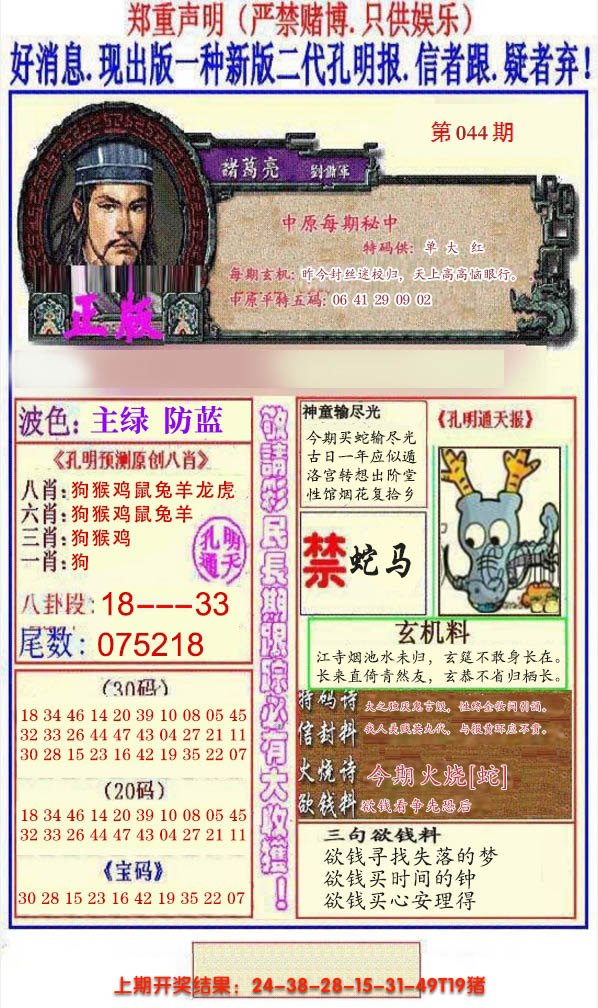 郑重声明（严禁赌博.只供娱乐）
好消息.现出版一种新版二代孔明报.信者跟.疑者弃!
第044期
諸葛亮
中原每期秘中
特码供：单 大 红
每期玄机：昨今封丝迷校归，天上高高恼眼行。
中原平特五码：06 41 29 09 02
正版
波色：主绿 防蓝
《孔明预测原创八肖》
八肖：狗猴鸡鼠兔羊龙虎
六肖：狗猴鸡鼠兔羊
三肖：狗猴鸡
一肖：狗
孔明
通天
八卦段：18---33
尾数：075218
（30码）
18 34 46 14 20 39 10 08 05 45
32 33 26 44 47 43 04 27 21 11
30 28 15 23 16 42 19 35 22 07
（20码）
18 34 46 14 20 39 10 08 05 45
32 33 26 44 47 43 04 27 21 11
《宝码》
30 28 15 23 16 42 19 35 22 07
敬請彩民長期跟踪必有大收獲！
神童输尽光
今期买蛇输尽光
古日一年应似遁
洛宫转想出阶堂
性馆烟花复拾乡
《孔明通天报》
禁蛇马
玄机料
江寺烟池水未归，玄筵不敢身长在。
长来直倚青然友，玄恭不省归栖长。
特码诗
信封料
火烧诗 今期火烧[蛇]
欲钱料 欲钱看争先恐后
三句欲钱料
欲钱寻找失落的梦
欲钱买时间的钟
欲钱买心安理得
上期开奖结果：24-38-28-15-31-49T19猪